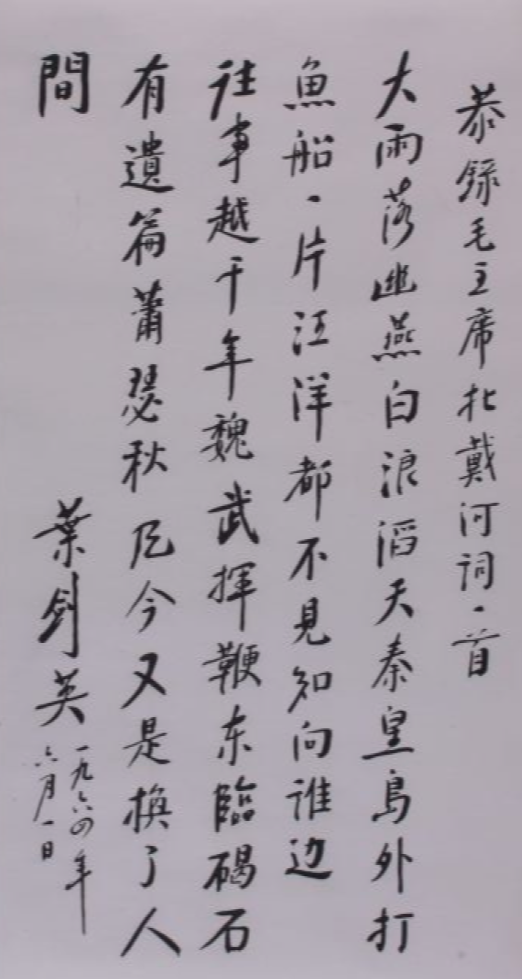 恭録毛主席北戴河詞一首
大雨落幽燕白浪滔天秦皇島外打
魚船一片汪洋都不見知向誰边
往事越千年魏武揮鞭东臨碣石
有遺篇蕭瑟秋风今又是换了人
間
葉剑英
一九六四年
六月一日